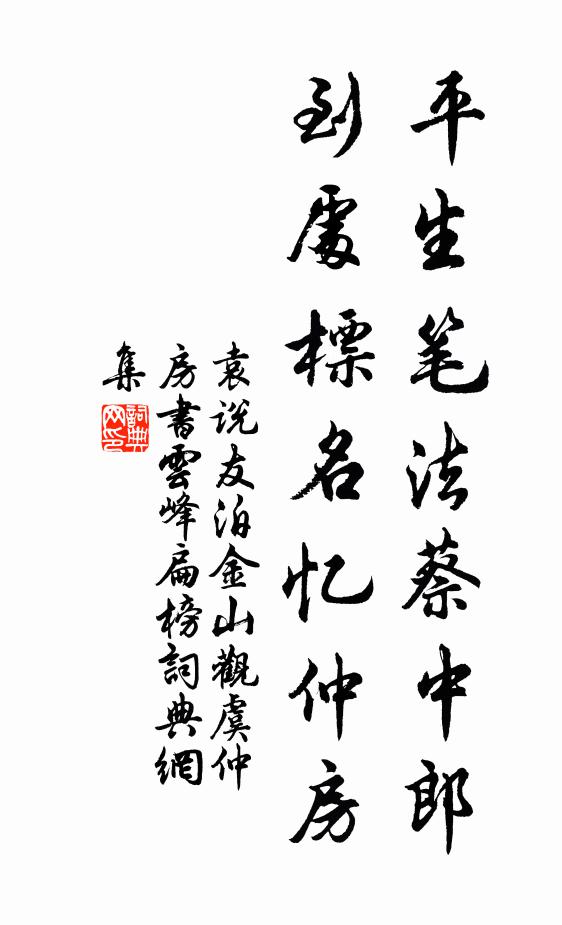 平生笔法蔡中郎
到處標名忆仲房
袁说友泊金山觀虞仲
房書雲峰扁榜詞典網
集
詞典網印